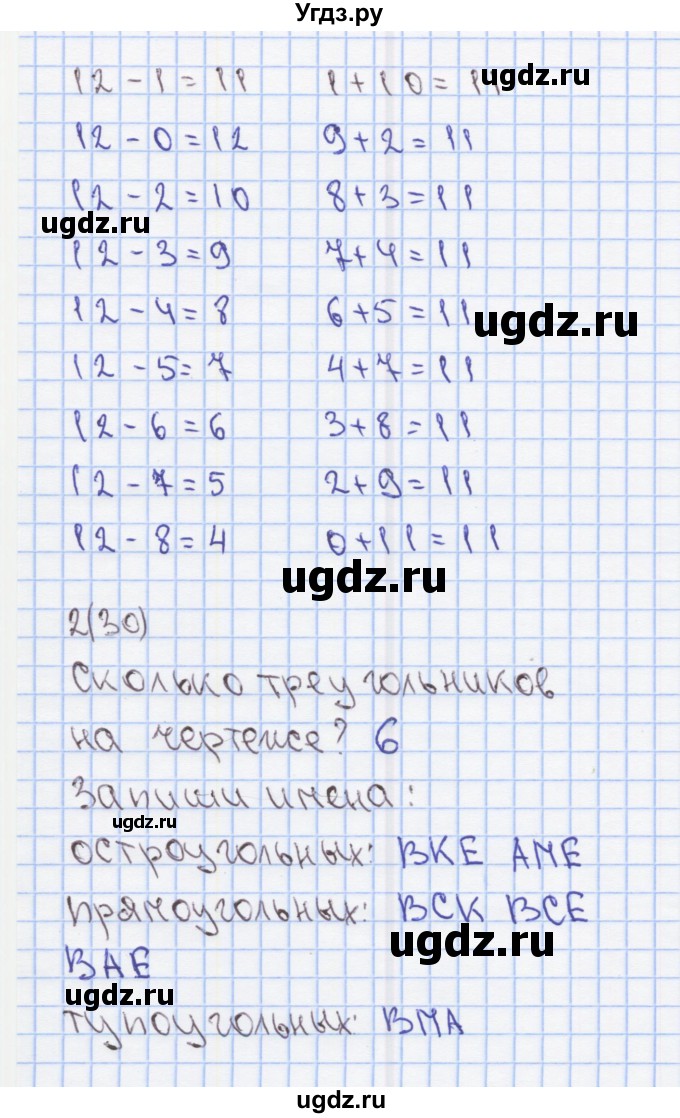 Угдз.ру
12 - 1 = 11 1 + 10 = 11
ugdz.ru
12 - 0 = 12 9 + 2 = 11
12 - 2 = 10 8 + 3 = 11
ugdz.ru
12 - 3 = 9 7 + 4 = 11
12 - 4 = 8 6 + 5 = 11
ugdz.ru
12 - 5 = 7 4 + 7 = 11
12 - 6 = 6 3 + 8 = 11
12 - 7 = 5 2 + 9 = 11
12 - 8 = 4 0 + 11 = 11
ugdz.ru
2(30)
Сколько треугольников
на чертеже? 6
Запиши имена:
ugdz.ru
остроугольных: ВКЕ АМЕ
прямоугольных: ВСК ВСЕ
ugdz.ru
ВАЕ
ugdz.ru
тупоугольных: ВМА
ugdz.ru